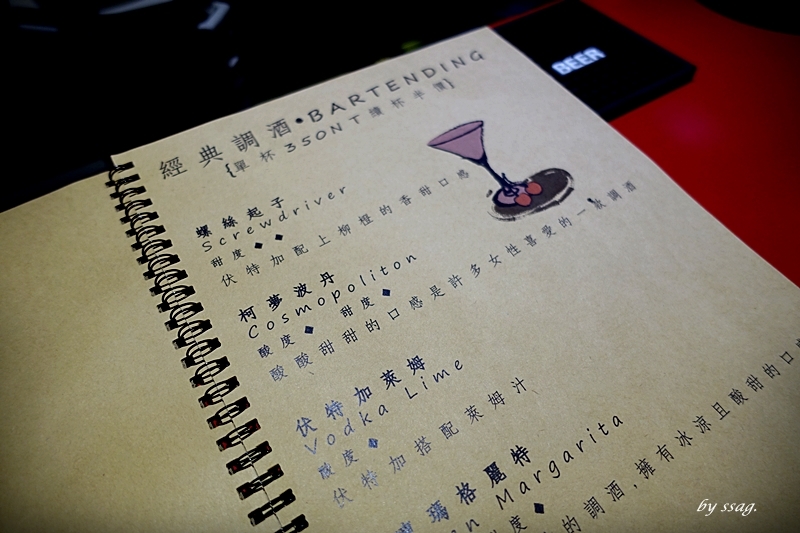 BEER
經典調酒•BARTENDING
{單杯350NT 續杯半價}
螺絲起子
Screwdriver
甜度◆◆
伏特加配上柳橙的香甜口感
柯夢波丹
Cosmopoliton
酸度◆ 甜度◆
酸酸甜甜的口感是許多女性喜愛的一款調酒
伏特加萊姆
Vodka Lime
酸度◆
伏特加搭配萊姆汁
瑪格麗特
Margarita
度◆
的調酒,擁有冰涼且酸甜的口
by ssag.